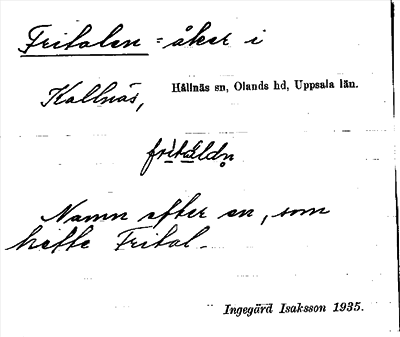 Fritalen = åker i
Kallnäs, Hållnäs sn, Olands hd, Uppsala län.
Namn efter en, som
hette Frital.
Ingegärd Isaksson 1935.